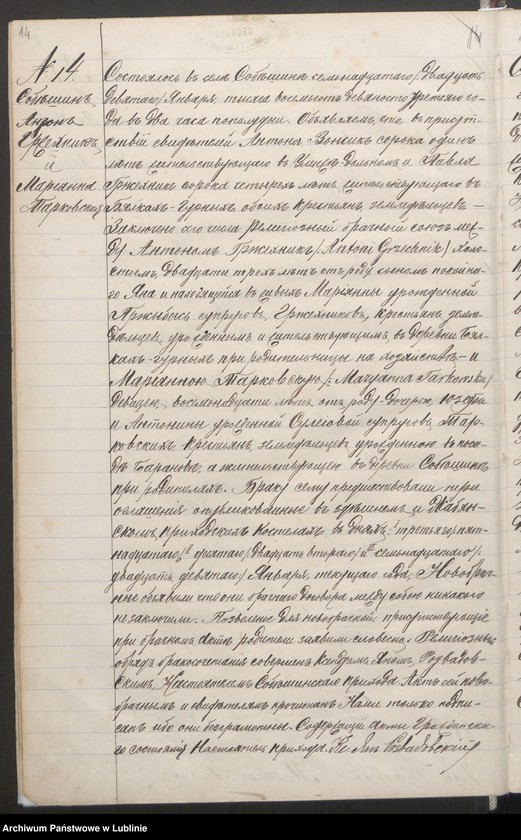 14
№ 14.
Собѣшинъ
Антонъ
Гржехникъ
и
Маріанна
Тарковская
Состоялось въ селѣ Собѣшинѣ семнадцатаго /двадцать
девятаго/ Января, тысяча восемьсотъ девяносто третьяго го-
да въ два часа пополудни. Объявляемъ, что въ присут-
ствіи свидѣтелей Антона Зонсикъ сорока одинъ
лѣтъ жительствующаго въ и Павла
Гржехникъ сорока четырехъ лѣтъ жительствующаго въ
Блжкахъ-Гурныхъ, обоихъ крестьянъ земледѣльцевъ –
Заключено сего числа религіозный брачный союзъ меж-
ду Антономъ Гржехникъ /Antoni Grzechnik/ холо-
стымъ, двадцати трехъ лѣтъ отъ роду, сыномъ покойна-
го Яна и находящейся въ живыхъ Маріанны урожденной
супруговъ Гржехниковъ, крестьянъ земле-
дѣльцевъ, урожденнымъ и жительствующимъ въ деревни Блж-
кахъ-гурныхъ при родительницы на хозяйствѣ – и
Маріанною Тарковскою /: Maryanna Tarkowska/
дѣвицею, восемнадцати лѣтъ отъ роду, дочерью Іозефа
и Антонины урожденной супруговъ Тар-
ковскихъ, крестьянъ, земледѣльцевъ урожденною въ поса-
дѣ Барановѣ, а жительствующею въ деревни Собѣшинѣ
при родителяхъ. Браку сему предшествовали три
оглашенія опубликованные въ здѣшнемъ и
скомъ, приходскихъ костелахъ въ дняхъ: I третьяго /пят-
надцатаго/, II десятаго /двадцать втораго/ III семнадцатаго/
двадцать девятаго/ Января, текущаго года. Новобрач-
ные объявили что они брачнаго договора между собою никакого
не заключили. Позволеніе для новобрачной присутствующіе
при брачномъ актѣ родители заявили словесно. Религіозный
обрядъ бракосочетанія совершенъ Ксендзомъ Яномъ Розвадов-
скимъ, Настоятелемъ Собѣшинскаго прихода. Актъ сей ново-
брачнымъ и свидѣтелямъ прочитанъ Нами только подпи-
санъ ибо они безграмотны. Содержащій акты Гражданска-
го состоянія Настоятель прихода. Кс. Янъ Розвадовскій
Archiwum Państwowe w Lublinie